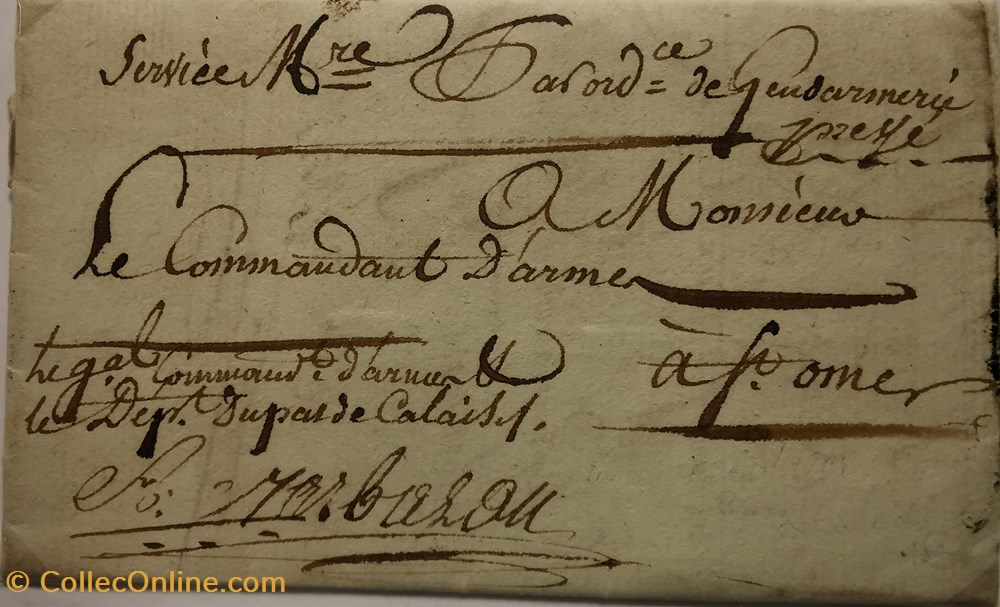 Service M.re Par ord.ce de Gendarmerie
pressé
A Monsieur
Le Commandant D'armes
à St. omer
Le gal Command.t d'armes &
le Dép.t Du pas de Calais
© CollecOnline.com